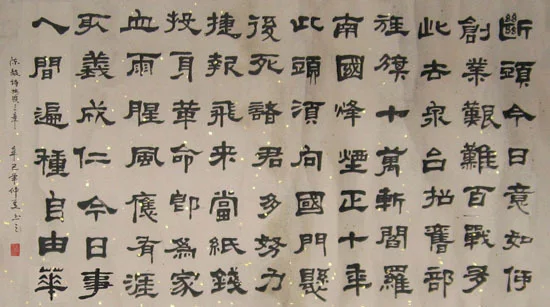 斷頭今日意如何
創業艱難百戰多
此去泉台招舊部
旌旗十萬斬閻羅
南國烽煙正十年
此頭須向國門懸
後死諸君多努力
捷報飛來當紙錢
投身革命即為家
血雨腥風應有涯
取義成仁今日事
人間遍種自由華
陳毅詩梅嶺三章 辛巳年仲